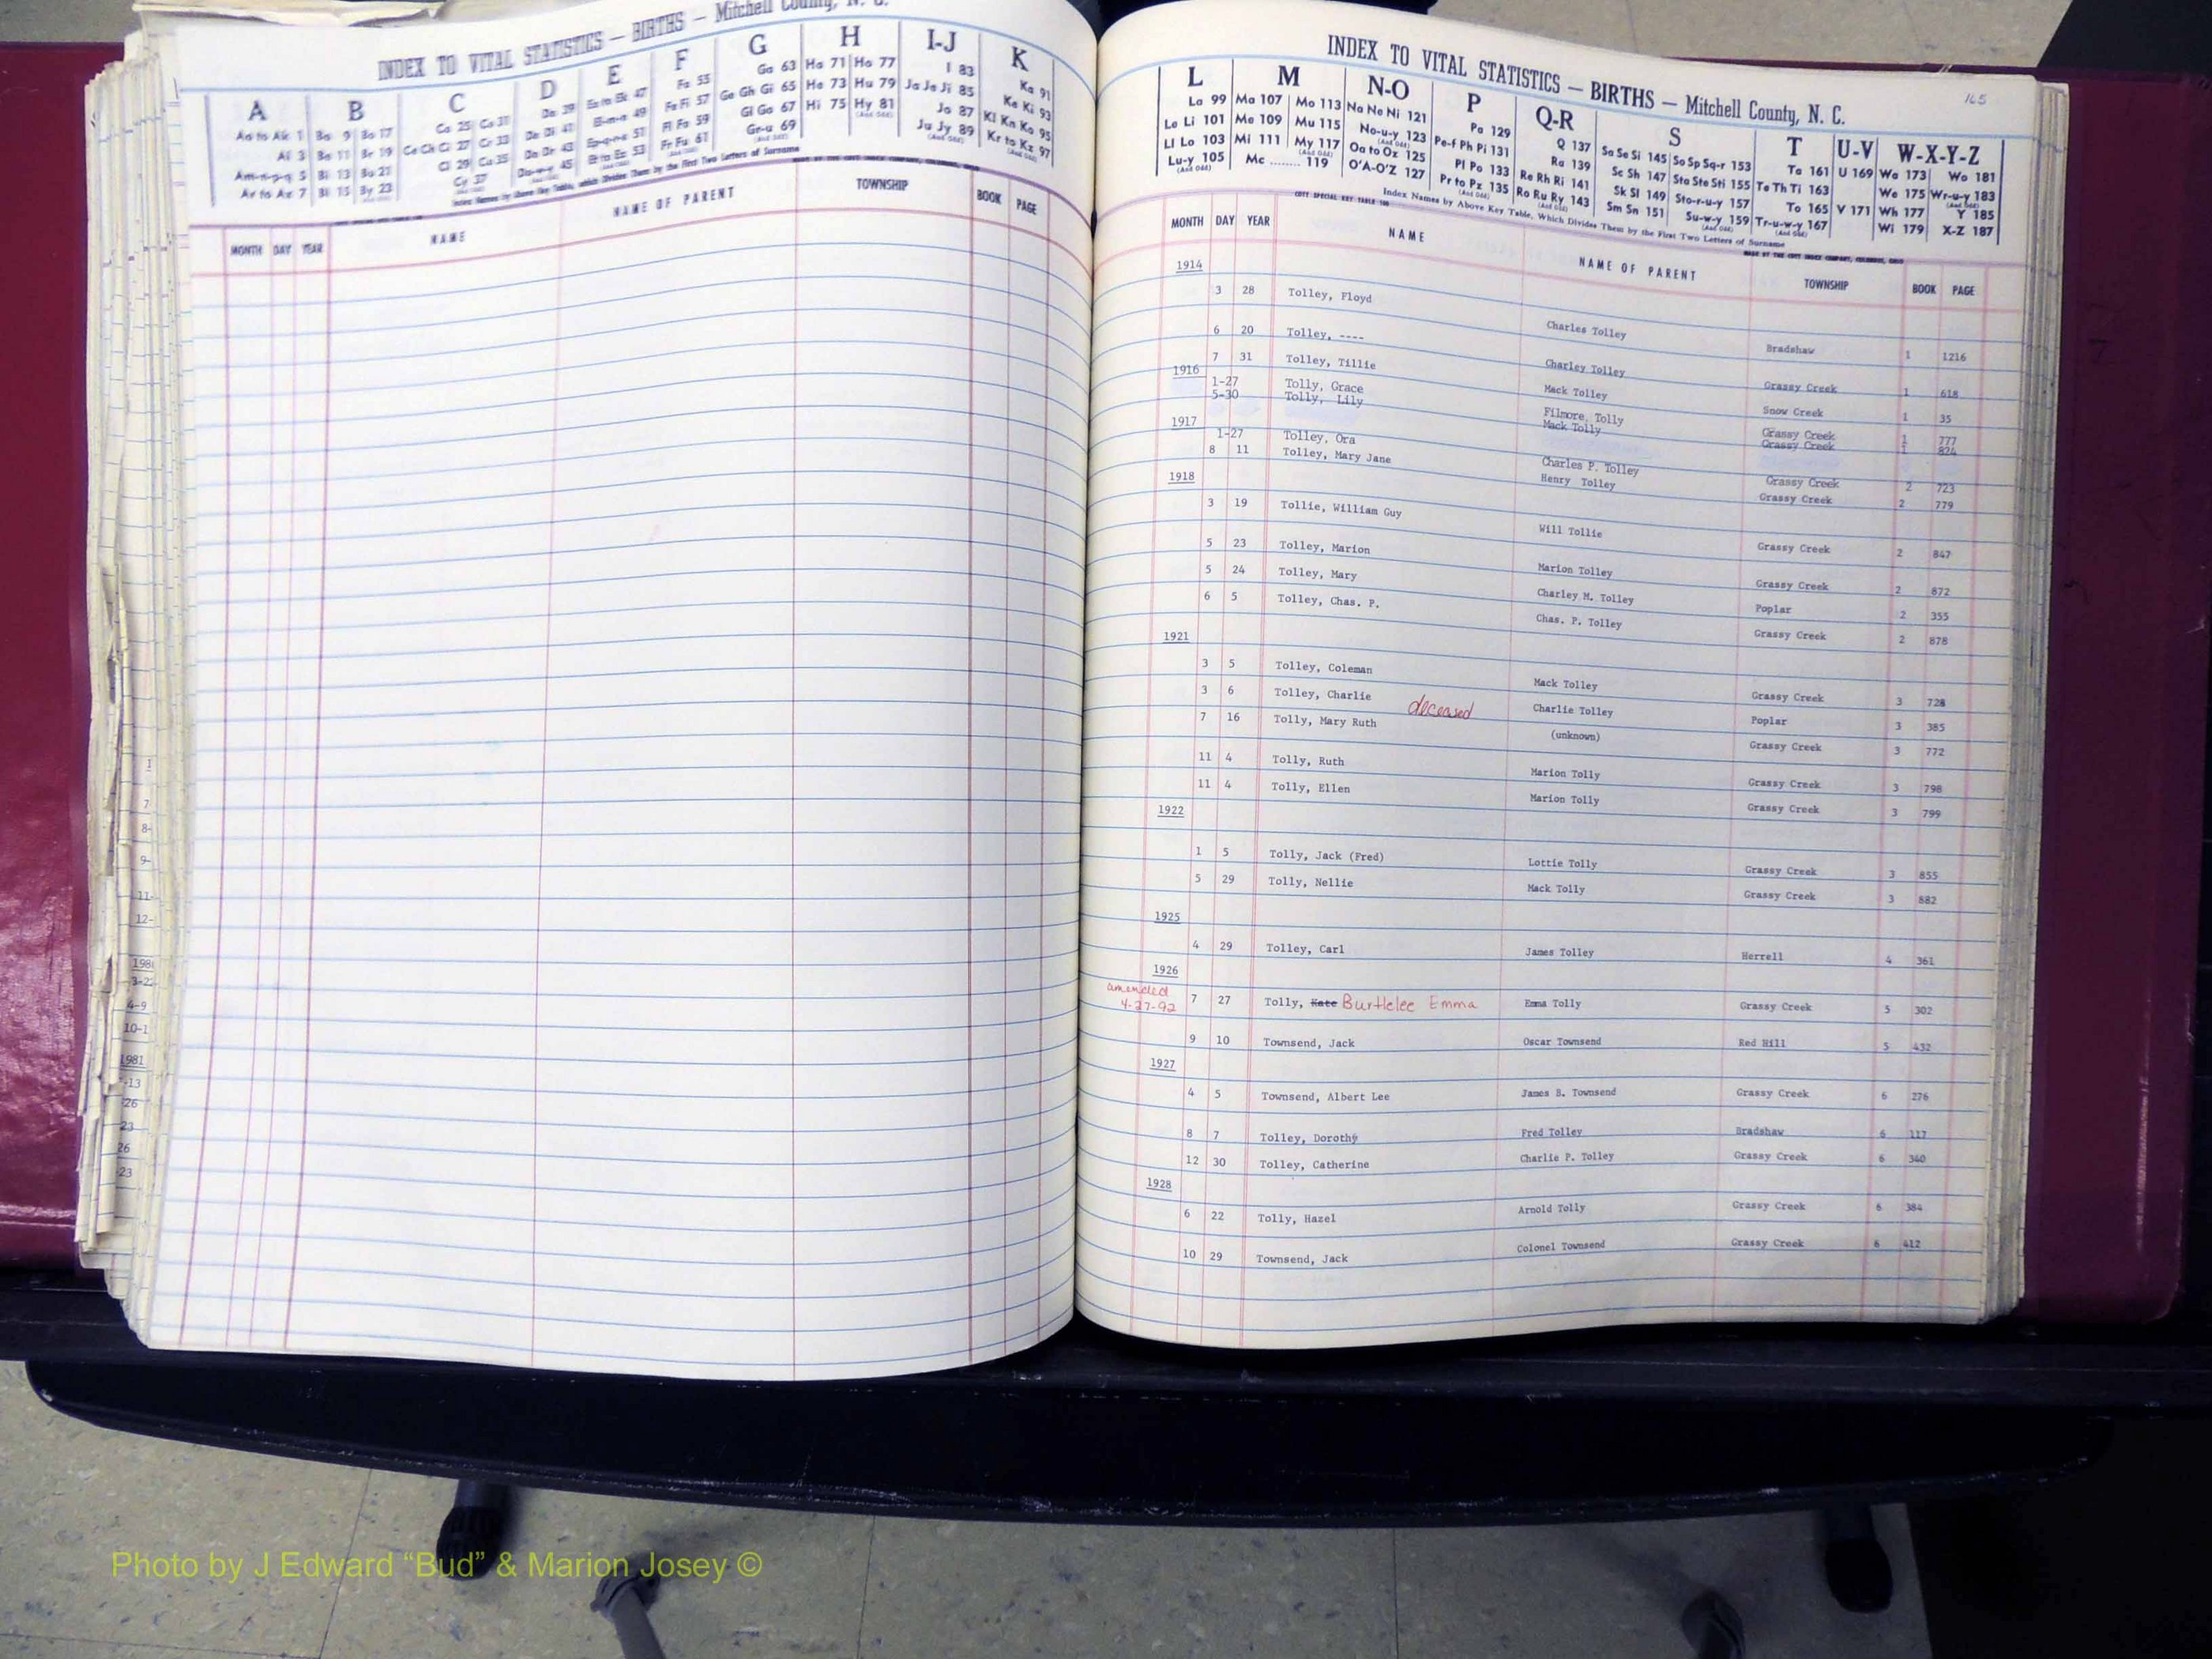 INDEX TO VITAL STATISTICS — BIRTHS — Mitchell County, N. C.
A B C D E F G H I-J K
Aa to Ak 1 Ba 9 Bo 17 Ca 25 Co 31 Da 39 Ea to Ek 47 Fa 55 Ga 63 Ha 71 Ho 77 I 83 Ka 91
Al 3 Be 11 Br 19 Ce Ch Ci 27 Cr 33 De Di 41 El-m-n 49 Fe Fi 57 Ge Gh Gi 65 He 73 Hu 79 Ja Je Ji 85 Ke Ki 93
Am-n-p-q 5 Bi 13 Bu 21 Cl 29 Cu 35 Do Dr 43 51 Fl Fo 59 Gl Go 67 Hi 75 Hy 81 Jo 87 Kl Kn Ko 95
Ar to Az 7 Bl 15 By 23 Cy 37 Du-w-y 45 Et to Ez 53 Fr Fu 61 Gr-u 69 (And Odd) Ju Jy 89 Kr to Kz 97
Index Names by Above Key Table, which Divides Them by the First Two Letters of Surname
MONTH DAY YEAR NAME NAME OF PARENT TOWNSHIP BOOK PAGE
165
INDEX TO VITAL STATISTICS — BIRTHS — Mitchell County, N. C.
L M N-O P Q-R S T U-V W-X-Y-Z
La 99 Ma 107 Mo 113 Na Ne Ni 121 Pa 129 Q 137 Sa Se Si 145 So Sp Sq-r 153 Ta 161 U 169 Wa 173 Wo 181
Le Li 101 Me 109 Mu 115 No-u-y 123 Pe-f Ph Pi 131 Ra 139 Sc Sh 147 Sta Ste Sti 155 Te Th Ti 163 We 175 Wr-u-y 183
Ll Lo 103 Mi 111 My 117 Oa to Oz 125 Pl Po 133 Re Rh Ri 141 Sk Sl 149 Sto-r-u-y 157 To 165 V 171 Wh 177 Y 185
Lu-y 105 Mc ........ 119 O'A-O'Z 127 Pr to Pz 135 Ro Ru Ry 143 Sm Sn 151 Su-w-y 159 Tr-u-w-y 167 Wi 179 X-Z 187
COTT SPECIAL KEY TABLE 100 Index Names by Above Key Table, Which Divides Them by the First Two Letters of Surname MADE BY THE COTT INDEX COMPANY, COLUMBUS, OHIO
MONTH DAY YEAR NAME NAME OF PARENT TOWNSHIP BOOK PAGE
1914
3 28 Tolley, Floyd Charles Tolley Bradshaw 1 1216
6 20 Tolley, ---- Charley Tolley Grassy Creek 1 618
7 31 Tolley, Tillie Mack Tolley Snow Creek 1 35
1916
1-27 Tolly, Grace Filmore, Tolly Grassy Creek 1 777
5-30 Tolly, Lily Mack Tolly Grassy Creek 1 824
1917
1-27 Tolley, Ora Charles P. Tolley Grassy Creek 2 723
8 11 Tolley, Mary Jane Henry Tolley Grassy Creek 2 779
1918
3 19 Tollie, William Guy Will Tollie Grassy Creek 2 847
5 23 Tolley, Marion Marion Tolley Grassy Creek 2 872
5 24 Tolley, Mary Charley M. Tolley Poplar 2 355
6 5 Tolley, Chas. P. Chas. P. Tolley Grassy Creek 2 878
1921
3 5 Tolley, Coleman Mack Tolley Grassy Creek 3 728
3 6 Tolley, Charlie deceased Charlie Tolley Poplar 3 385
7 16 Tolly, Mary Ruth (unknown) Grassy Creek 3 772
11 4 Tolly, Ruth Marion Tolly Grassy Creek 3 798
11 4 Tolly, Ellen Marion Tolly Grassy Creek 3 799
1922
1 5 Tolly, Jack (Fred) Lottie Tolly Grassy Creek 3 855
5 29 Tolly, Nellie Mack Tolly Grassy Creek 3 882
1925
4 29 Tolley, Carl James Tolley Herrell 4 361
1926
amended
4-27-92 7 27 Tolly, Kate Burtlelee Emma Emma Tolly Grassy Creek 5 302
9 10 Townsend, Jack Oscar Townsend Red Hill 5 432
1927
4 5 Townsend, Albert Lee James B. Townsend Grassy Creek 6 276
8 7 Tolley, Dorothy Fred Tolley Bradshaw 6 117
12 30 Tolley, Catherine Charlie P. Tolley Grassy Creek 6 340
1928
6 22 Tolly, Hazel Arnold Tolly Grassy Creek 6 384
10 29 Townsend, Jack Colonel Townsend Grassy Creek 6 412
1
7
8-
9-
11-
12-
198
3-22
4-9
10-1
1981
-13
26
23
26
23
Photo by J Edward “Bud” & Marion Josey ©